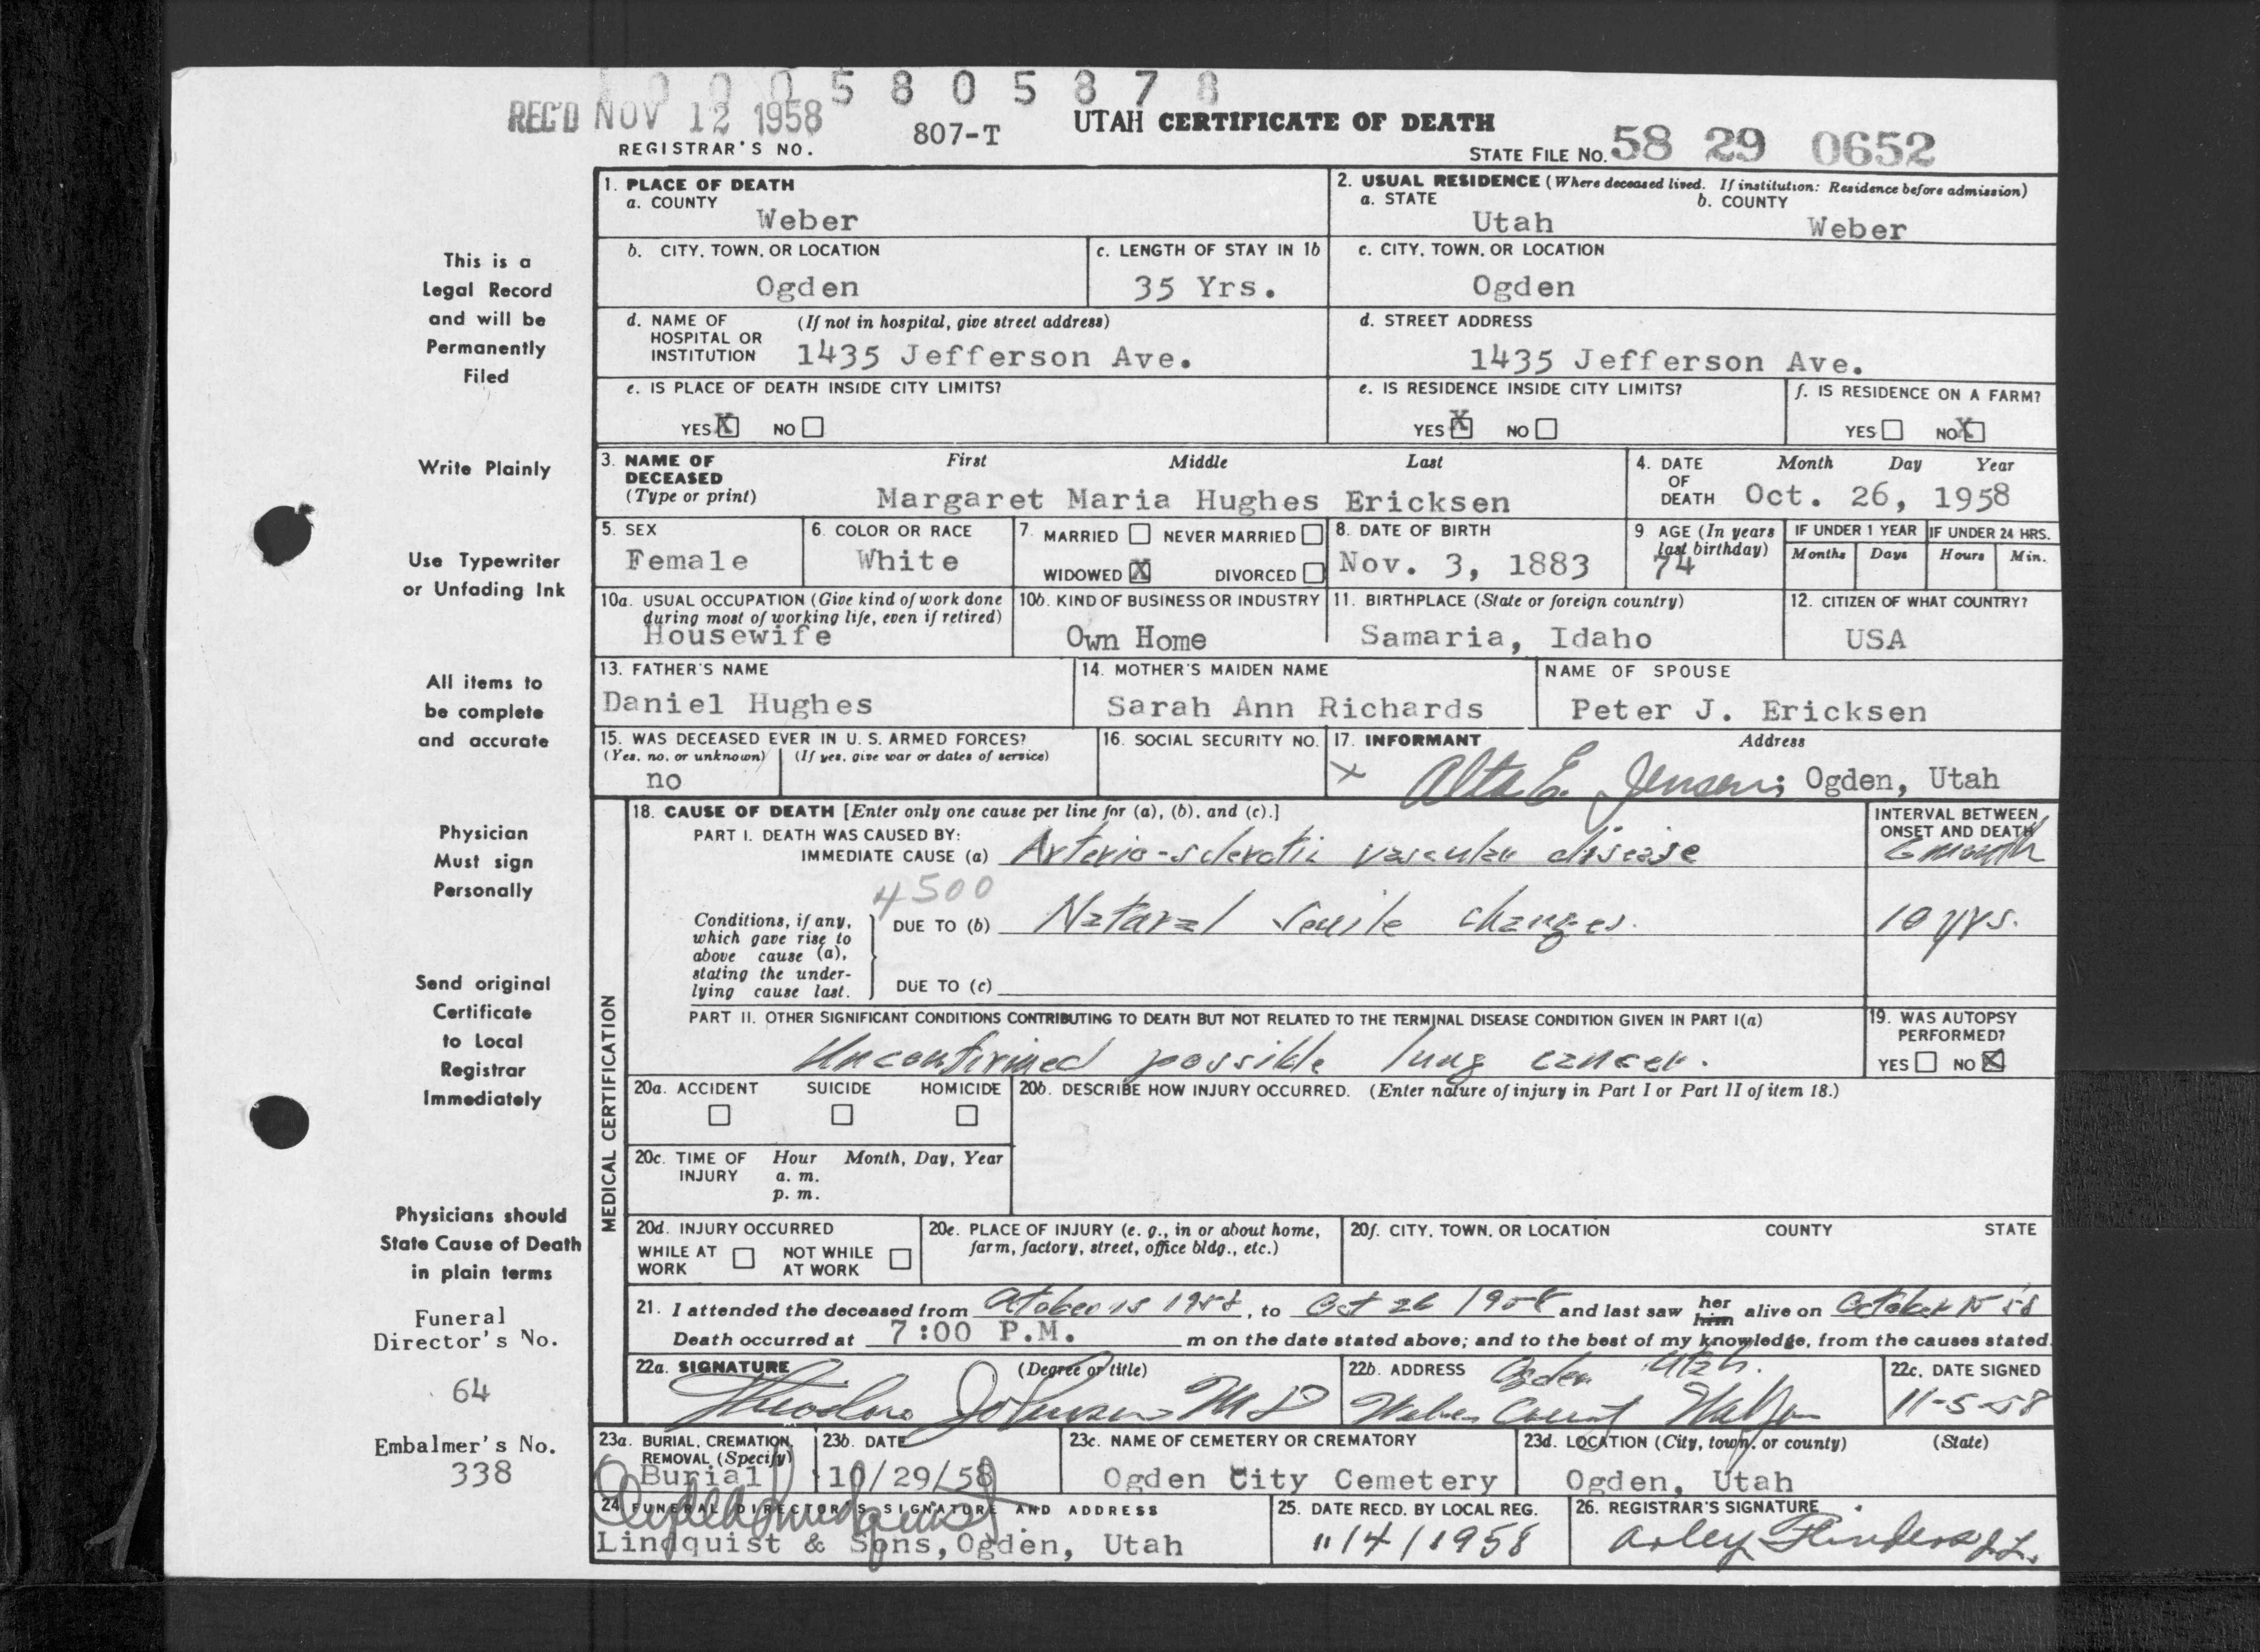 0005805878
REC'D NOV 12 1958
807-T
UTAH CERTIFICATE OF DEATH
REGISTRAR'S NO.
STATE FILE NO. 58 29 0652
This is a
Legal Record
and will be
Permanently
Filed
Write Plainly
Use Typewriter
or Unfading Ink
All items to
be complete
and accurate
Physician
Must sign
Personally
Send original
Certificate
to Local
Registrar
Immediately
Physicians should
State Cause of Death
in plain terms
Funeral
Director's No.
64
Embalmer's No.
338
1. PLACE OF DEATH
a. COUNTY
Weber
2. USUAL RESIDENCE (Where deceased lived. If institution: Residence before admission)
a. STATE b. COUNTY
Utah Weber
b. CITY, TOWN, OR LOCATION
Ogden
c. LENGTH OF STAY IN 1b
35 Yrs.
c. CITY, TOWN, OR LOCATION
Ogden
d. NAME OF (If not in hospital, give street address)
HOSPITAL OR
INSTITUTION 1435 Jefferson Ave.
d. STREET ADDRESS
1435 Jefferson Ave.
e. IS PLACE OF DEATH INSIDE CITY LIMITS?
YES X NO
e. IS RESIDENCE INSIDE CITY LIMITS?
YES X NO
f. IS RESIDENCE ON A FARM?
YES NO X
3. NAME OF First Middle Last
DECEASED
(Type or print) Margaret Maria Hughes Ericksen
4. DATE Month Day Year
OF
DEATH Oct. 26, 1958
5. SEX
Female
6. COLOR OR RACE
White
7. MARRIED NEVER MARRIED
WIDOWED X DIVORCED
8. DATE OF BIRTH
Nov. 3, 1883
9 AGE (In years
last birthday)
74
IF UNDER 1 YEAR
Months Days
IF UNDER 24 HRS.
Hours Min.
10a. USUAL OCCUPATION (Give kind of work done
during most of working life, even if retired)
Housewife
10b. KIND OF BUSINESS OR INDUSTRY
Own Home
11. BIRTHPLACE (State or foreign country)
Samaria, Idaho
12. CITIZEN OF WHAT COUNTRY?
USA
13. FATHER'S NAME
Daniel Hughes
14. MOTHER'S MAIDEN NAME
Sarah Ann Richards
NAME OF SPOUSE
Peter J. Ericksen
15. WAS DECEASED EVER IN U. S. ARMED FORCES?
(Yes, no, or unknown) (If yes, give war or dates of service)
no
16. SOCIAL SECURITY NO.
17. INFORMANT Address
X Alta E. Jensen; Ogden, Utah
MEDICAL CERTIFICATION
18. CAUSE OF DEATH [Enter only one cause per line for (a), (b), and (c).]
INTERVAL BETWEEN
ONSET AND DEATH
PART I. DEATH WAS CAUSED BY:
IMMEDIATE CAUSE (a) Arterio-sclerotic vascular disease
6 month
4500
Conditions, if any,
which gave rise to
above cause (a),
stating the under-
lying cause last.
DUE TO (b) Natural senile changes.
10 yrs.
DUE TO (c)
PART II. OTHER SIGNIFICANT CONDITIONS CONTRIBUTING TO DEATH BUT NOT RELATED TO THE TERMINAL DISEASE CONDITION GIVEN IN PART I(a)
Unconfirmed possible lung cancer.
19. WAS AUTOPSY
PERFORMED?
YES NO X
20a. ACCIDENT SUICIDE HOMICIDE
20b. DESCRIBE HOW INJURY OCCURRED. (Enter nature of injury in Part I or Part II of item 18.)
20c. TIME OF Hour Month, Day, Year
INJURY a. m.
p. m.
20d. INJURY OCCURRED
WHILE AT NOT WHILE
WORK AT WORK
20e. PLACE OF INJURY (e. g., in or about home,
farm, factory, street, office bldg., etc.)
20f. CITY, TOWN, OR LOCATION COUNTY STATE
21. I attended the deceased from October 15 1958, to Oct 26 1958 and last saw her him alive on October 15 58
Death occurred at 7:00 P.M. m on the date stated above; and to the best of my knowledge, from the causes stated.
22a. SIGNATURE (Degree or title)
Theodore Johnson MD
22b. ADDRESS Ogden Utah.
Weber County
22c. DATE SIGNED
11-5-58
23a. BURIAL, CREMATION,
REMOVAL (Specify)
Burial
23b. DATE
10/29/58
23c. NAME OF CEMETERY OR CREMATORY
Ogden City Cemetery
23d. LOCATION (City, town, or county) (State)
Ogden, Utah
24 FUNERAL DIRECTOR'S SIGNATURE AND ADDRESS
Lindquist & Sons, Ogden, Utah
25. DATE RECD. BY LOCAL REG.
11/4/1958
26. REGISTRAR'S SIGNATURE
Arley Flinders